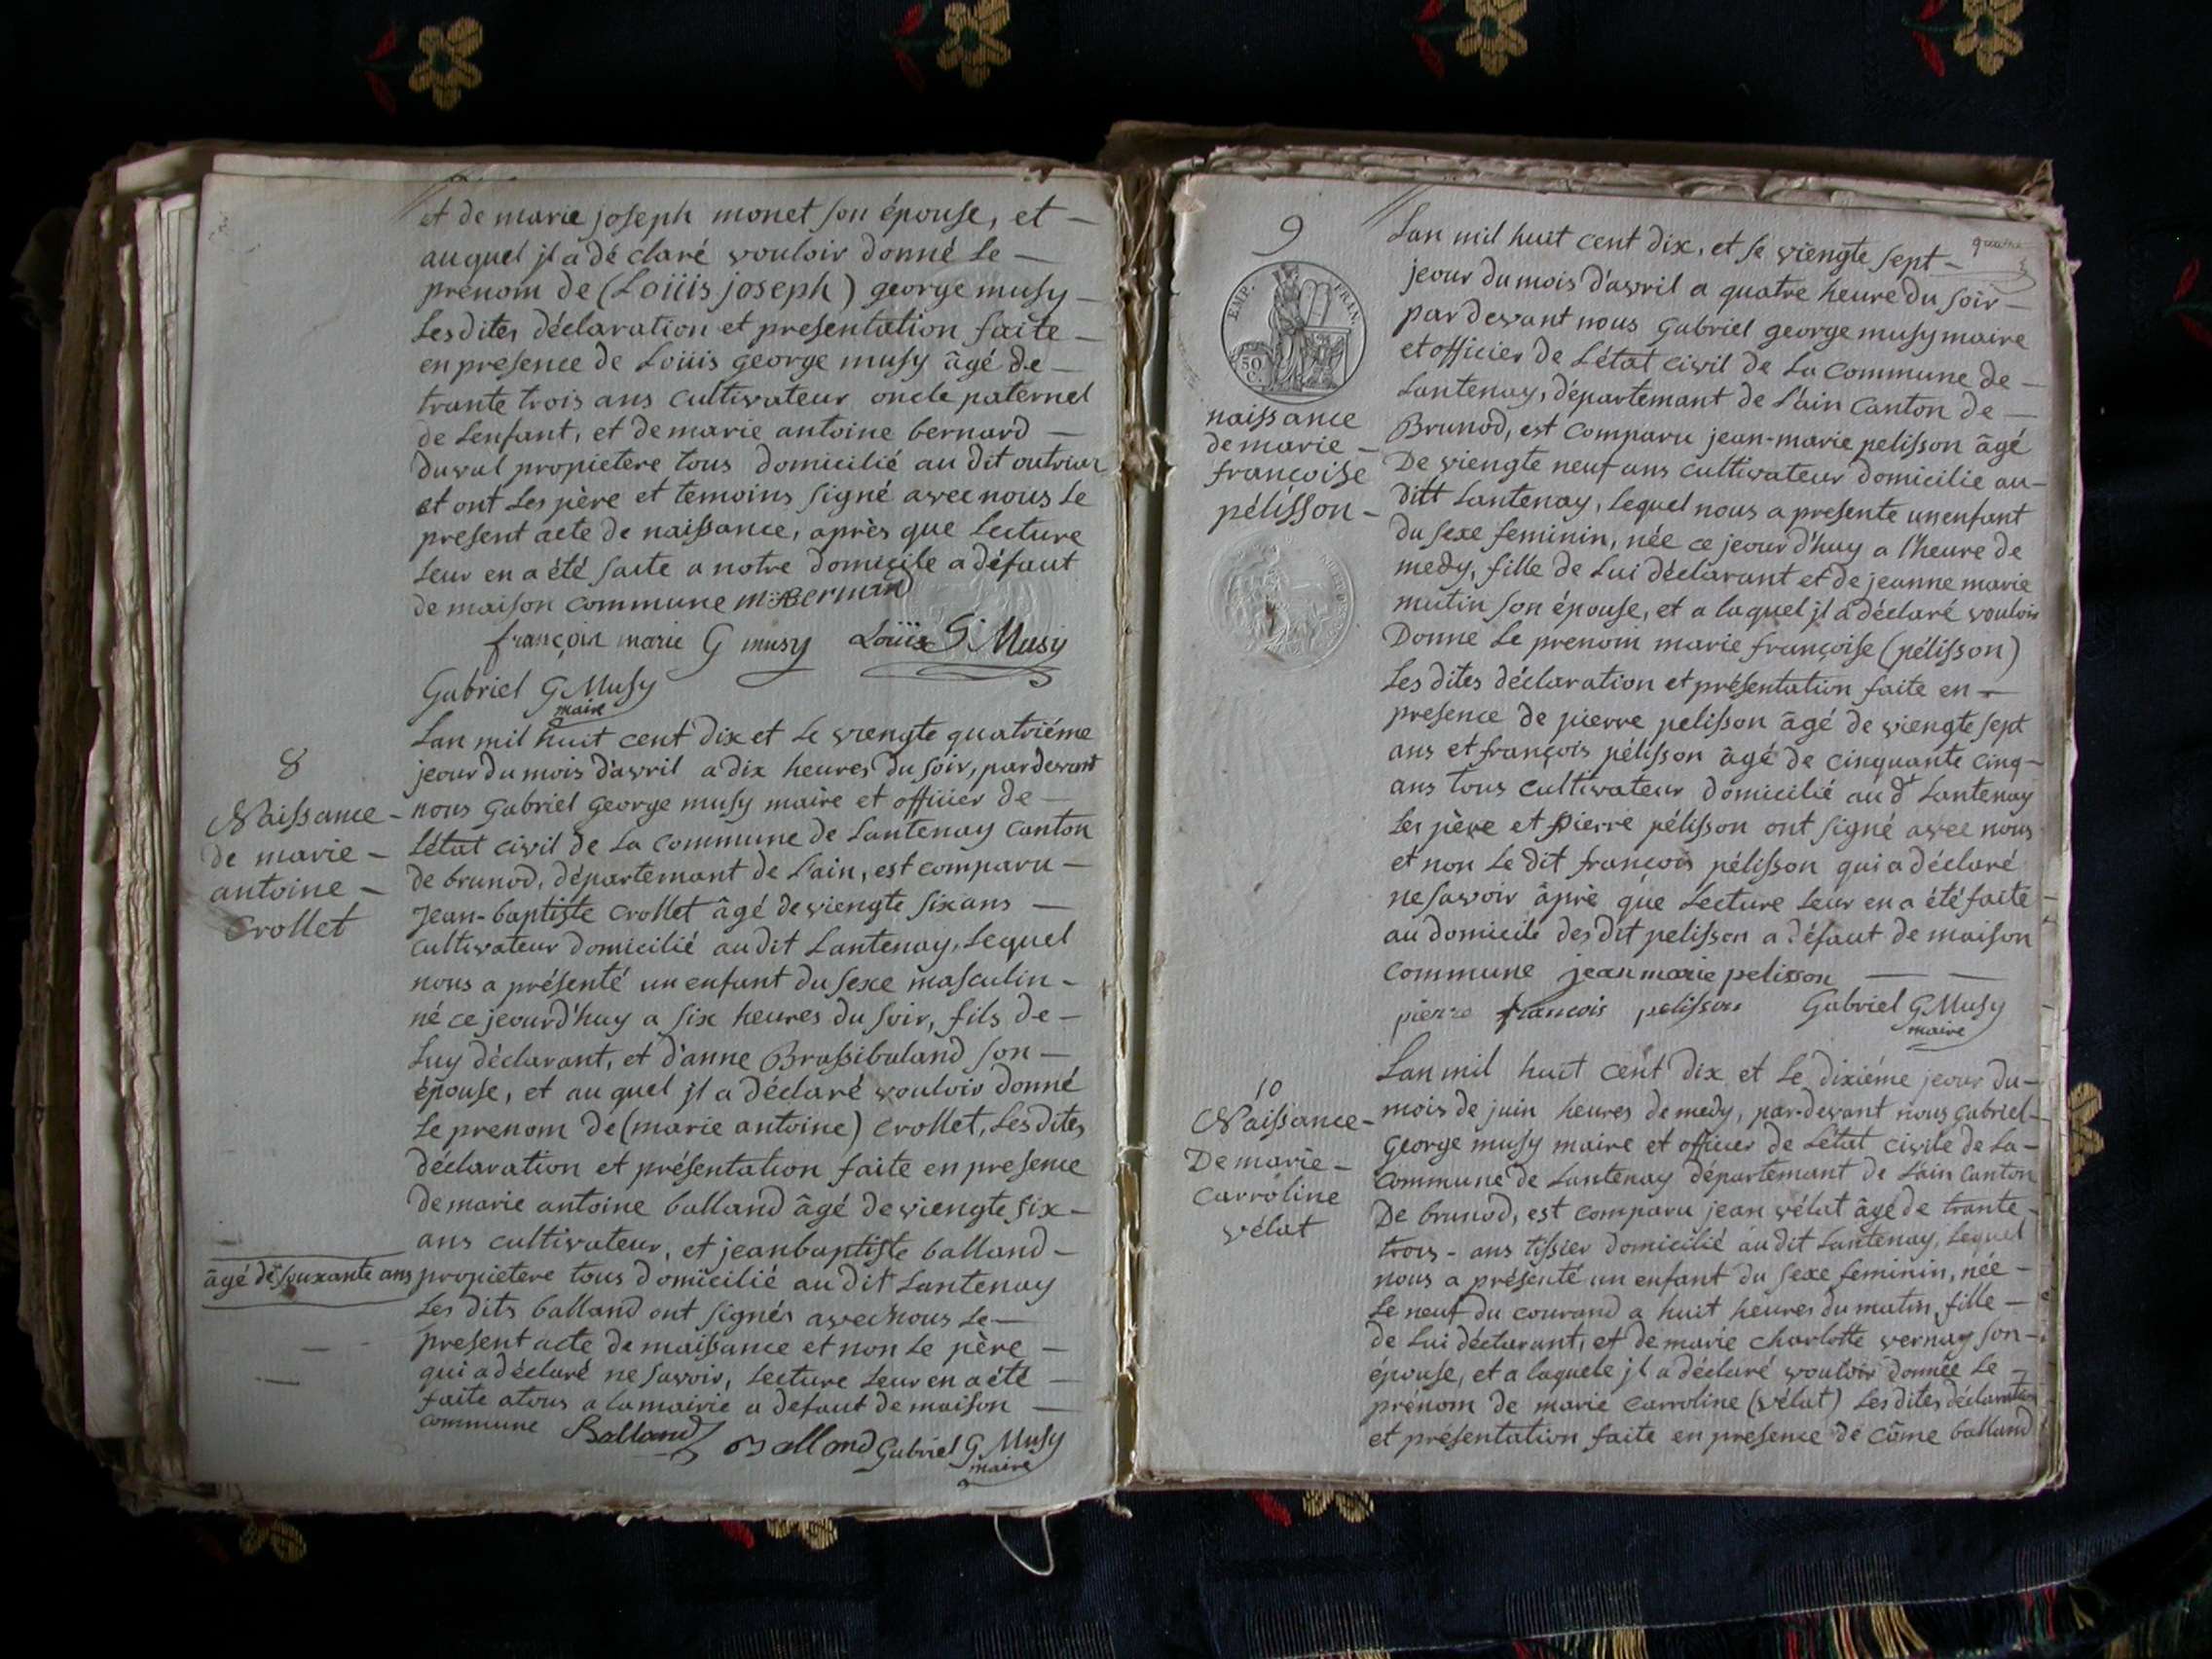 et de marie joseph monet son épouse, et —
auquel jl a dé claré vouloir donné le —
prenom de (Loüis joseph) george musy —
Lesdites déclaration et presentation faite —
en presence de Loüis george musy âgé de —
trante trois ans cultivateur oncle paternel
de Lenfant, et de marie antoine bernard —
duval propietere tous domicilié au dit outriaz
et ont Les père et temoins signé avec nous Le
present acte de naissance, après que Lecture
Leur en a été faite a notre domicile a défaut
de maison commune
françois marie G musy Loüis G Musy
Gabriel G Musy
maire
8
Naissance —
de marie —
antoine —
Crollet
Lan mil huit cent dix et Le viengte quatriéme
jeour du mois d'avril a dix heures du soir, par devant
nous Gabriel George musy maire et officier de —
Létat civil de La Commune de Lantenay Canton
de brunod, départemant de L'ain, est comparu —
Jean-baptiste Crollet âgé de viengte six ans —
Cultivateur domicilié audit Lantenay, Lequel
nous a présenté un enfant du sexe masculin -
né ce jeourd'huy a six heures du soir, fils de -
Luy déclarant, et d'anne Brassibuland son —
épouse, et au quel jl a déclaré vouloir donné
Le prenom de (marie antoine) Crollet, Les dites
déclaration et présentation faite en presence
de marie antoine balland âgé de viengte six -
ans cultivateur, et jean baptiste balland -
âgé de souxante ans
propietere tous domicilié au dit Lantenay
Les dits balland ont signés avec nous Le —
present acte de naissance et non Le père —
qui a déclaré ne savoir, Lecture Leur en a été —
faite a tous a La mairie a defaut de maison —
commune Balland Balland Gabriel G Musy
maire
quatre
9
EMP. FRAN.
50 C.
naissance
de marie —
françoise
pélisson —
Lan mil huit cent dix, et Le viengte sept —
jeour du mois d'avril a quatre heure du soir —
par devant nous Gabriel george musy maire
et officier de Létat civil de La Commune de —
Lantenay, départemant de L'ain Canton de —
Brunod, est Comparu jean-marie pelisson âgé
De viengte neuf ans cultivateur domicilie au —
ditt Lantenay, Lequel nous a presente un enfant
du sexe feminin, née ce jeour d'huy a l'heure de
medy, fille de Lui déclarant et de jeanne marie
mutin son épouse, et a laquel jl a déclaré vouloir
Donne Le prenom marie françoise (pélisson)
Les dites déclaration et présentation faite en —
presence de pierre pelisson âgé de viengte sept
ans et françois pélisson âgé de cinquante cinq —
ans tous cultivateur domicilié au dt Lantenay
Les père et pierre pélisson ont signé avec nous
et non Le dit françois pélisson qui a déclaré
ne savoir âprè que Lecture Leur en a été faite
au domicile des dit pelisson a défaut de maison
Commune jean marie pelisson — —
pierre françois pelisson Gabriel G Musy
maire
10
Naissance —
De marie —
Carroline
vélat
Lan mil huit cent dix et Le dixiéme jeour du —
mois de juin heures de medy, par-devant nous Gabriel —
George musy maire et officier de Létat civile de La —
Commune de Lantenay départemant de L'ain Canton
De brunod, est comparu jean vélat âgé de trante —
trois - ans tissier domicilié au dit Lantenay, Lequel
nous a présenté un enfant du sexe feminin, née —
Le neuf du courand a huit heures du matin, fille —
de Lui déclarant, et de marie charlotte vernay son —
épouse, et a laquele jl a déclaré vouloir donnée Le —
prenom de marie Carroline (vélat) Les dites déclaration
et présentation faite en presence de Côme balland